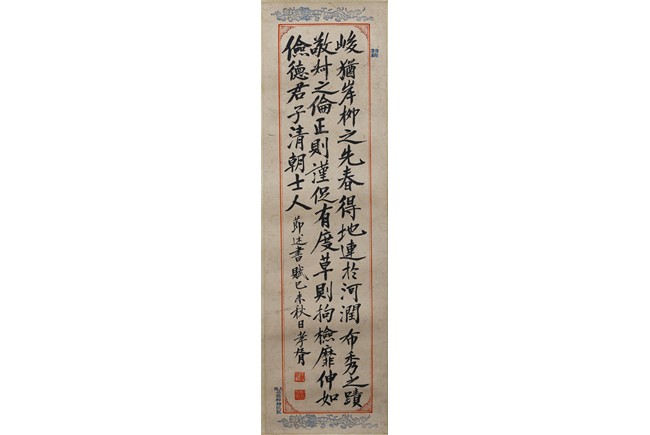 峻猶岸柳之先春得地連於河潤布秀之蹟
敬州之倫正則謹促有度草則拘檢靡伸如
儉德君子清朝士人
節述書賦己未秋日孝胥